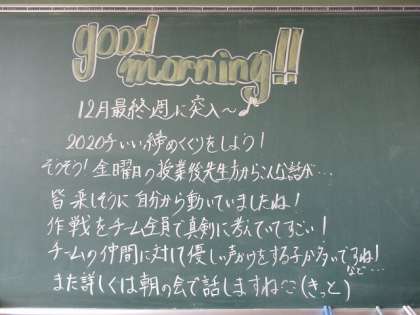 good
morning!!
12月最終週に突入～♪
2020チいい締めくくりをしよう!
そうそう!金曜日の授業後先生方からこんな話が…
皆楽しそうに自分から動いていましたね!
作戦をチーム全員で真剣に考えていてすごい!
チームの仲間に対して優しい声かけをする子が多いですね!
など…
また詳しくは朝の会で話しますね(きっと)